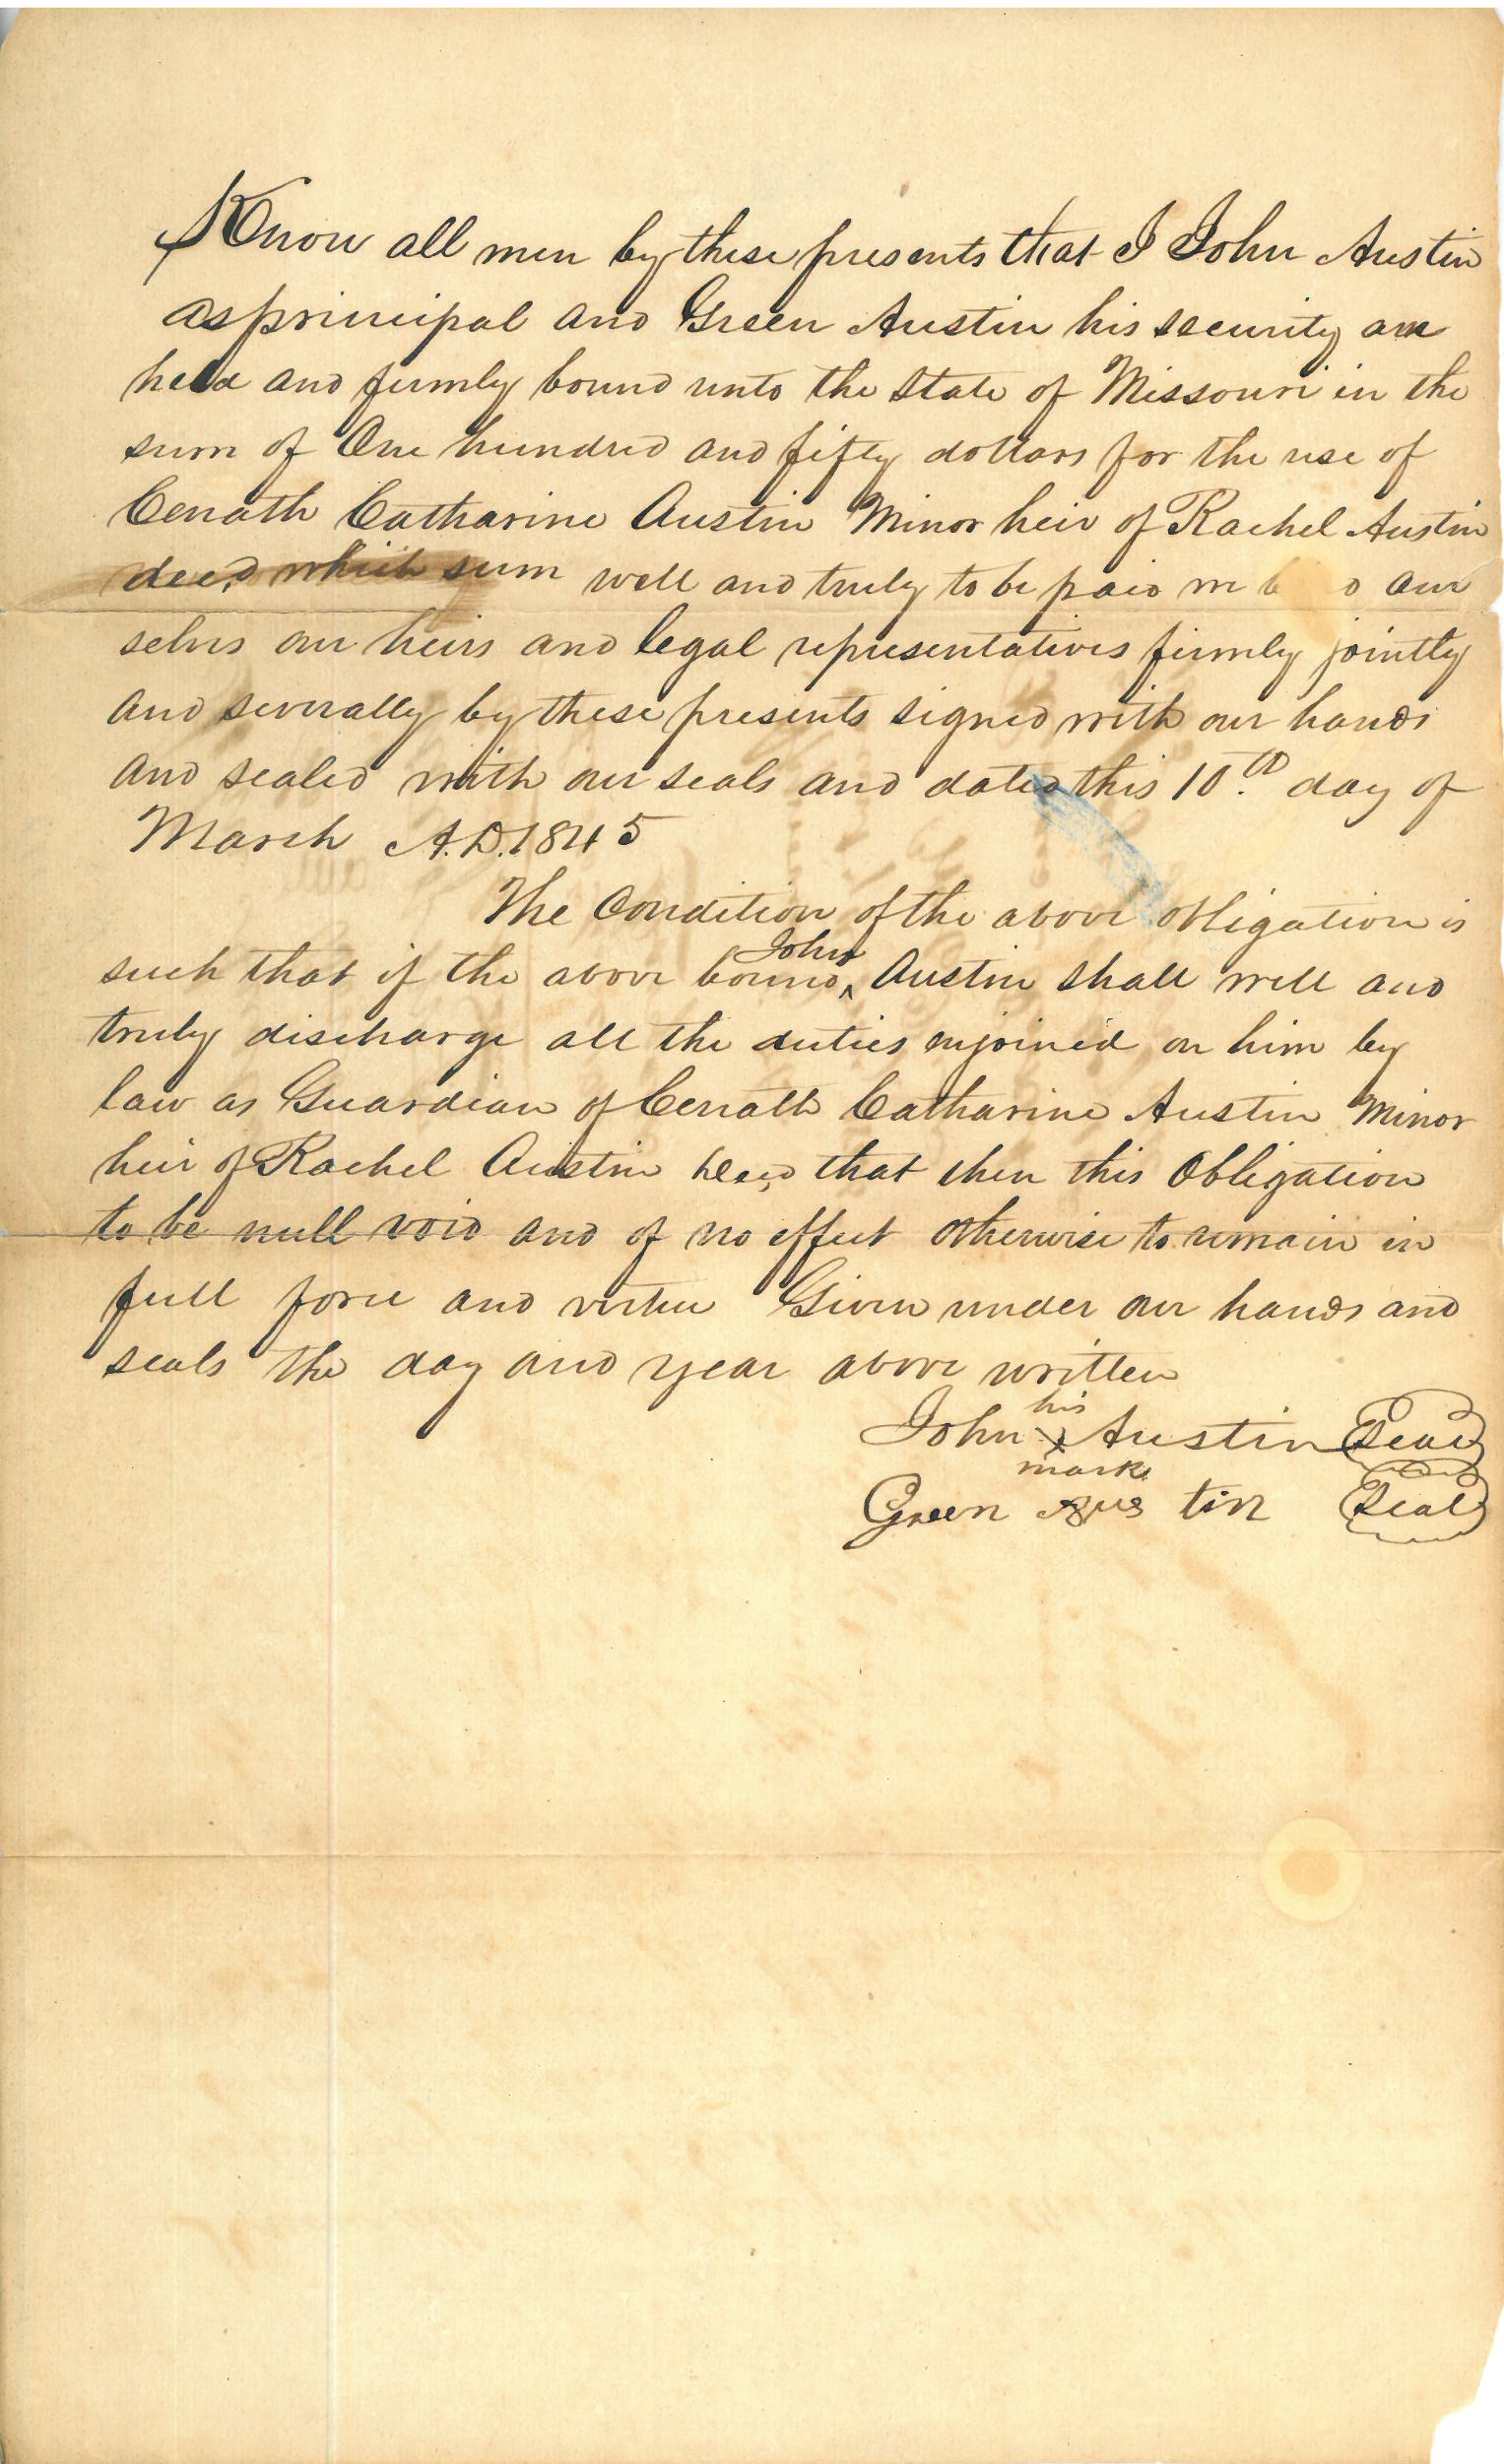 Know all men by these presents that I John Austin
as principal and Green Austin his security are
held and firmly bound unto the State of Missouri in the
sum of One hundred and fifty dollars for the use of
Cenath Catharine Austin Minor heir of Rachel Austin
decd which sum well and truly to be paid we b d our
selves our heirs and legal representatives firmly jointly
and severally by these presents signed with our hands
and sealed with our seals and dated this 10th day of
March A.D. 1845
The Condition of the above obligation is
such that if the above bound John Austin shall well and
truly discharge all the duties enjoined on him by
law as Guardian of Cenath Catharine Austin Minor
heir of Rachel Austin Decd that then this Obligation
to be null void and of no effect otherwise to remain in
full force and virtue Given under our hands and
seals the day and year above written
John his x mark Austin Seal
Green Aus tin Seal